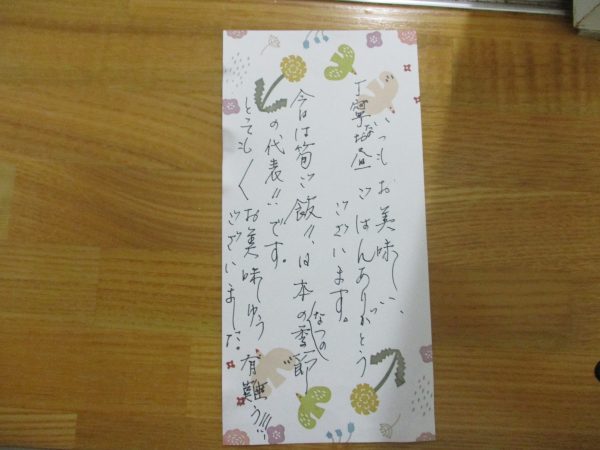 いつもお美味しい、
丁寧なお昼ごはんありがとう
ございます。
今日は筍ご飯!!、日本の季節
なつの
の代表!!です。
とても〱お美味しゅう有難う!!!
ございました。